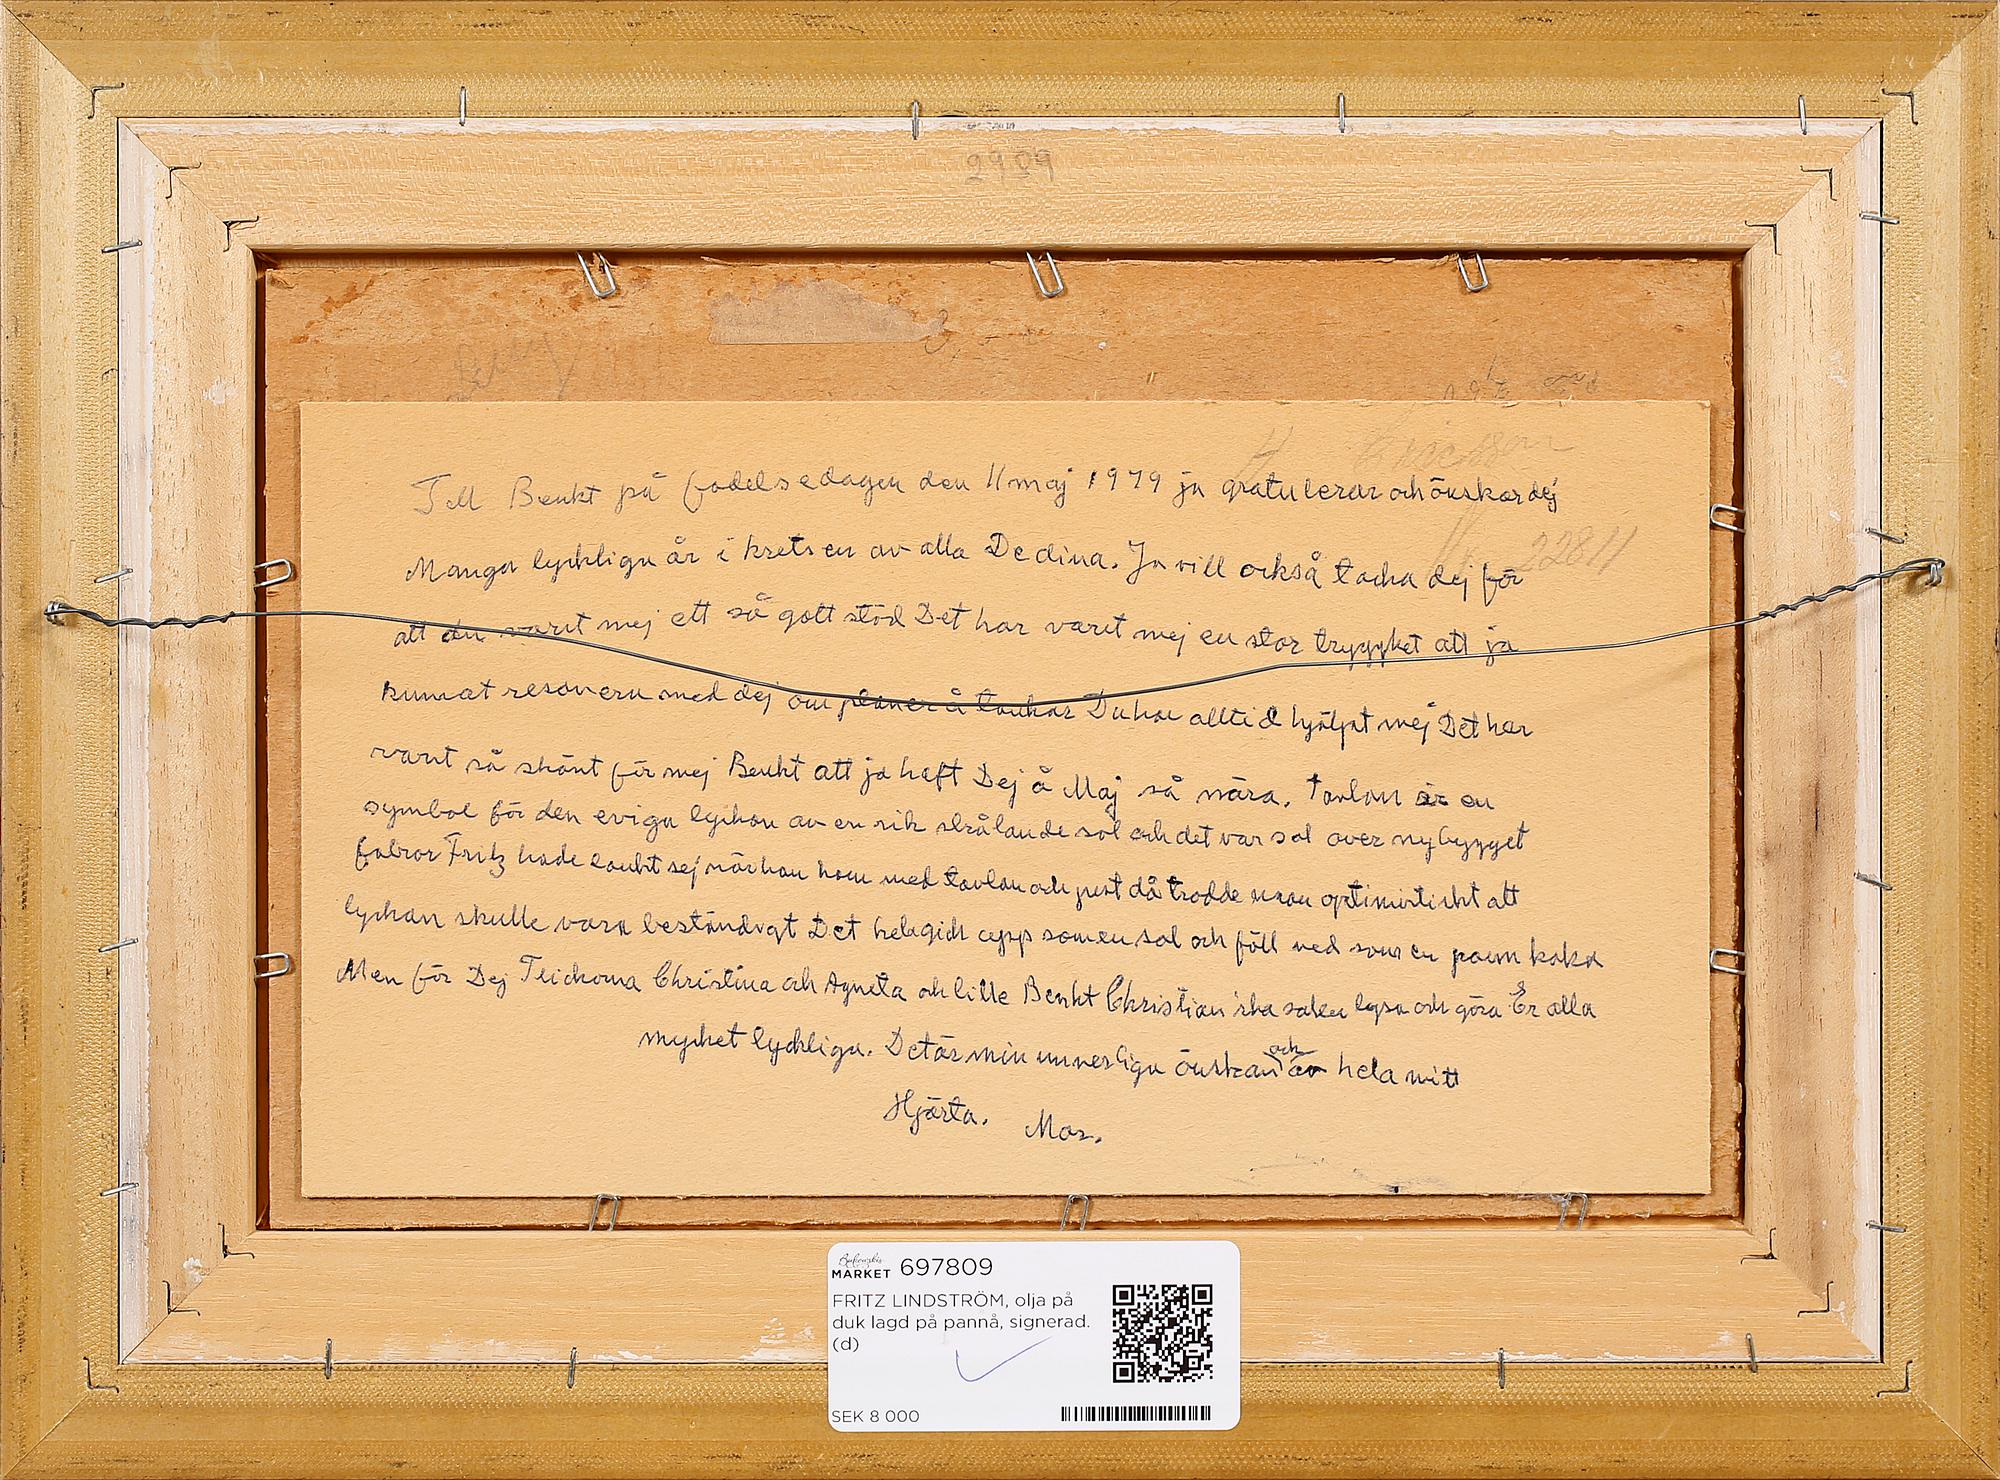 2989
Till Benkt på fodelsedagen den 11 maj 1979 ja gratulerar och önskar dej
Manga lyckliga år i kretsen av alla De dina. Ja vill också tacka dej för
att du varit mej ett så gott stöd Det har varit mej en stor trygghet att ja
kunnat resonera med dej om planer å tankar Du har alltid hjälpt mej Det har
varit så skönt för mej Benkt att ja haft Dej å Maj så nära. Tavlan är en
symbol för den eviga lyckan av en rik strålande sol och det var sol over nybygget
farbror Fritz hade tänkt sej när han kom med tavlan och just då trodde man optimistiskt att
lyckan skulle vara beständigt Det hela gick upp som en sol och föll ned som en pannkaka
Men för Dej Flickorna Christina och Agneta och lille Benkt Christian ska solen lysa och göra Er alla
mycket lyckliga. Det är min innerliga önskan och av hela mitt
Hjärta. Mor.
Ericsson
22811
Bukowskis
MARKET 697809
FRITZ LINDSTRÖM, olja på
duk lagd på pannå, signerad.
(d)
SEK 8 000